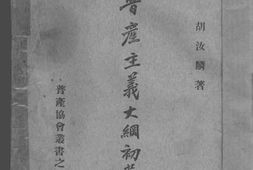 胡汝麟著
普產主義大綱初
普產協會叢書之